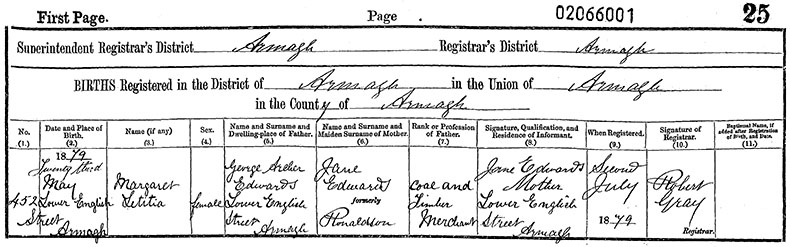 First Page. Page 02066001 25
Superintendent Registrar's District Armagh Registrar's District Armagh
BIRTHS Registered in the District of Armagh in the Union of Armagh
in the County of Armagh
No. (1.)
Date and Place of Birth. (2.)
Name (if any) (3.)
Sex. (4.)
Name and Surname and Dwelling-place of Father. (5.)
Name and Surname and Maiden Surname of Mother. (6.)
Rank or Profession of Father. (7.)
Signature, Qualification, and Residence of Informant. (8.)
When Registered. (9.)
Signature of Registrar. (10.)
Baptismal Name, if added after Registration of Birth, and Date. (11.)
452
1879
Twenty third
May
Lower English
Street
Armagh
Margaret
Letitia
female
George
Edwards
Lower English
Street
Armagh
Jane
Edwards
formerly
Ronaldson
Coal and
Timber
Merchant
Jane Edwards
Mother
Lower English
Street Armagh
Second
July
1879
Robert
Gray
Registrar.